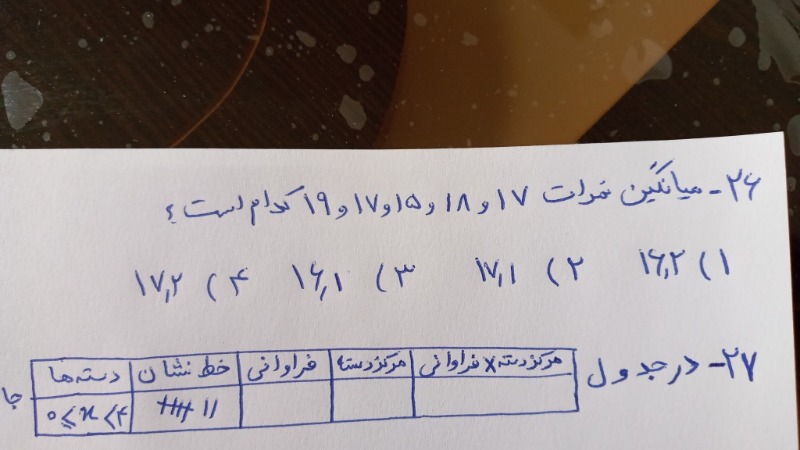 ۲۶- میانگین نمرات ۱۷ و ۱۸ و ۱۵ و ۱۷ و ۱۹ کدام است؟
۱) ۱۶٫۲ ۲) ۱۷٫۱ ۳) ۱۶٫۱ ۴) ۱۷٫۲
۲۷- در جدول
دسته‌ها خط نشان فراوانی مرکز دسته مرکز دسته × فراوانی
۰ ≤ x < ۴ 卌 ||
جا